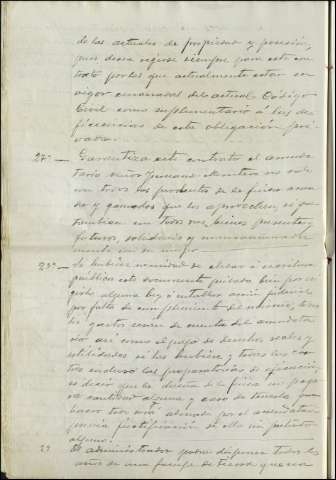 de las actuales de propiedad y posesión,
pues desea regirse siempre para este con
trato por las que actualmente estan en
vigor emanadas del actual Código
Civil como suplementario á las de
ficiencias de esta obligación pri
vada.
27ª — Garantiza este contrato el arrenda
tario señor no solo
con todos los productos de la finca arrenda
da y ganados que los aprovechen, si que
tambien con todos sus bienes presentes y
futuros, solidaria y mancomunada
mente con su
28ª — Si hubiere necesidad de elevar á escritura
pública este documento privado bien por exi
girlo alguna ley ó entablar accion judicial
por falta de cumplimiento del mismo, todos
los gastos seran de cuenta del arrendata
rio así como el pago de derechos reales y
utilidades si los hubiere y todos los
es decir que la dueña de la finca no paga
rá cantidad alguna y caso de tenerla que
hacer será abonada por el arrendatario
previa justificación de ello sin pretexto
alguno.
29 El administrador podrá disponer todos los
años de una fanega de tierra que sea